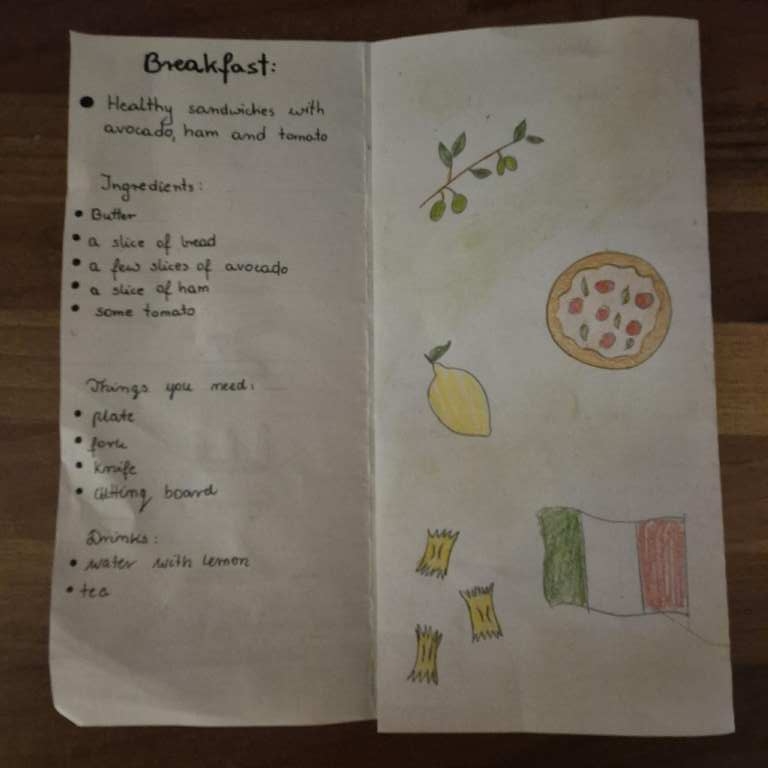 Breakfast:
• Healthy sandwiches with
avocado, ham and tomato
Ingredients:
• Butter
• a slice of bread
• a few slices of avocado
• a slice of ham
• some tomato
Things you need:
• plate
• fork
• knife
• cutting board
Drinks:
• water with lemon
• tea